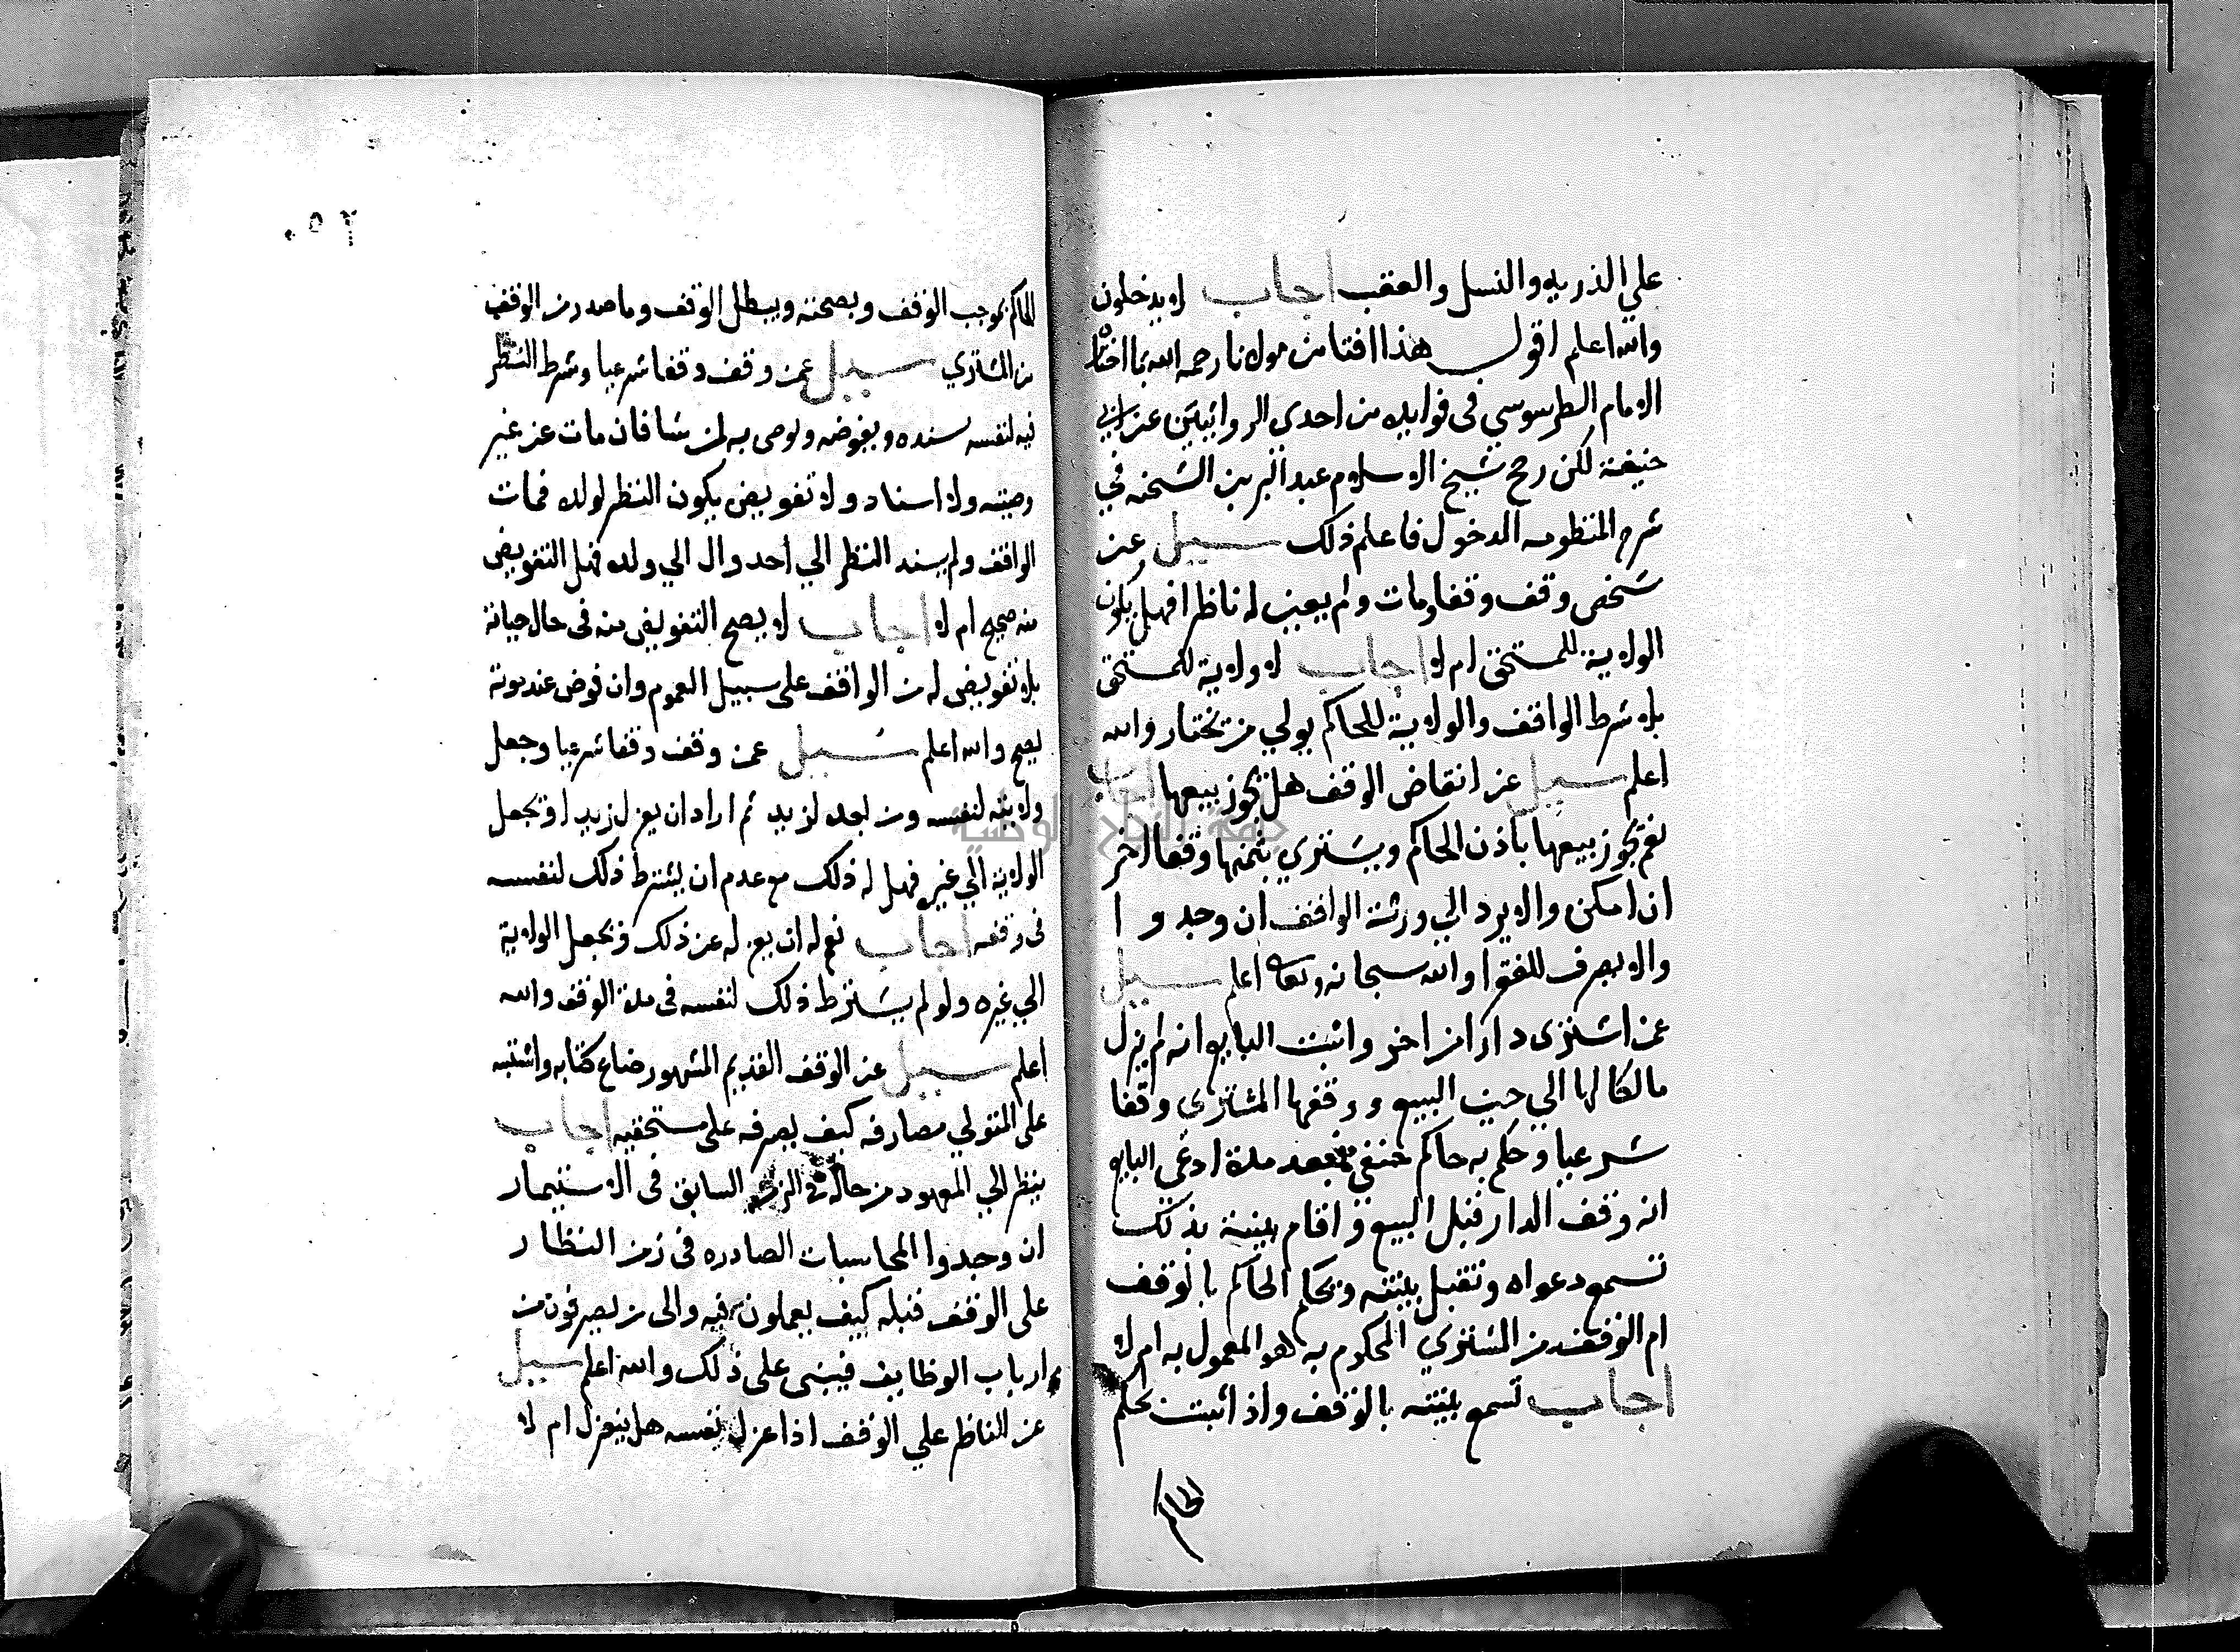 علي الذريه والنسل والعقب اجاب لا يدخلون
والله اعلم اقول هذا افتا من مولانا رحمه الله بما اختاره
الامام الطرسوسي في فوايده من احدى الروايتين عن ابي
حنيفة لكن رجح شيخ الاسلام عبد البر بن الشحنه في
شرح المنظومه الدخول فاعلم ذلك سيل عن
شخص وقف وقفا ومات ولم يعين له ناظرا فهل يكون
الولاية للمستحق ام لا اجاب لا ولاية للمستحق
بلا شرط الواقف والولاية للحاكم يولي من يختار والله
اعلم سيل عن انقاض الوقف هل يجوز بيعها اجاب
نعم يجوز بيعها باذن الحاكم ويشتري بثمنها وقفا اخر
ان امكن والا يرد الي ورثة الواقف ان وجدوا
والا يصرف للفقرا والله سبحانه وتعا اعلم سيل
عن اشترى دارا من اخر واثبت البايع انه لم يزل
مالكا لها الي حين البيع ووقفها المشترى وقفا
شرعيا وحكم به حاكم حنفي فبعد مدة ادعى البايع
انه وقف الدار قبل البيع واقام بينة بذلك
تسمع دعواه وتقبل بينته ويحكم الحاكم بالوقف
ام الوقف من المشتري المحكوم به هو المعمول به ام لا
اجاب تسمع بينته بالوقف واذا ثبت يحكم
الحاكم
٢٥٠
الحاكم بموجب الوقف وبصحته ويبطل الوقف وما صدر من الوقف
من المشتري سيل عمن وقف وقفا شرعيا وشرط النظر
فيه لنفسه يسنده ويفوضه ويوصي به لمن شا فان مات عن غير
وصية ولا اسناد ولا تفويض يكون النظر لولده فمات
الواقف ولم يسند النظر الي احد وال الي ولده فهل التفويض
منه صحيح ام لا اجاب لا يصح التفويض منه في حال حياته
بلا تفويض له من الواقف على سبيل العموم وان فوض عند موته
يصح والله اعلم سيل عمن وقف وقفا شرعيا وجعل
ولايته لنفسه ومن بعده لزيد ثم اراد ان يعزل زيدا ويجعل
الولاية الي غيره فهل له ذلك مع عدم ان يشترط ذلك لنفسه
في وقفه اجاب نعم له ان يعزله عن ذلك ويجعل الولاية
الي غيره ولو لم يشترط ذلك لنفسه في مدة الوقف والله
اعلم سيل عن الوقف القديم المشهور ضاع كتابه واشتبه
على المتولي مصارفه كيف يصرفه على مستحقيه اجاب
ينظر الي المعهود من حاله في الزمن السابق في الاستيمار
ان وجدوا المحاسبات الصادره في زمن النظار
على الوقف قبله كيف يعملون فيه والى من يصرفون من
ارباب الوظايف فيبنى على ذلك والله اعلم سيل
عن الناظر علي الوقف اذا عزل نفسه هل ينعزل ام لا
جامعة النجاح الوطنية